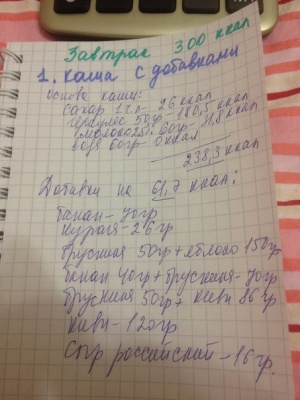 Завтрак 300 ккал
1. Каша с добавками
основа каши:
сахар 1 ч.л - 26 ккал
геркулес 50гр - 180,5 ккал
молоко 2,5% 60гр - 31,8 ккал
вода 60гр - 0 ккал
238,3 ккал
Добавки на 61,7 ккал:
банан - 70гр
курага - 26гр
брусника 50гр + яблоко 150гр
банан 40гр + брусника - 70гр
брусника 50гр + киви 86гр
киви - 120гр
сыр российский - 16гр.